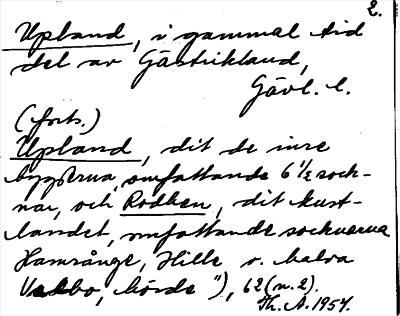 2.
Upland, i gammal tid
del av Gästrikland,
Gävl. l.
(forts.)
Upland, dit de inre
bygderna, omfattande 6 1/2 sock-
nar, och Rodhen, dit kust-
landet, omfattande socknarna
Hamrånge, Hille o. halva
Valbo, hörde"), 62 (n. 2).
Th. A. 1957.